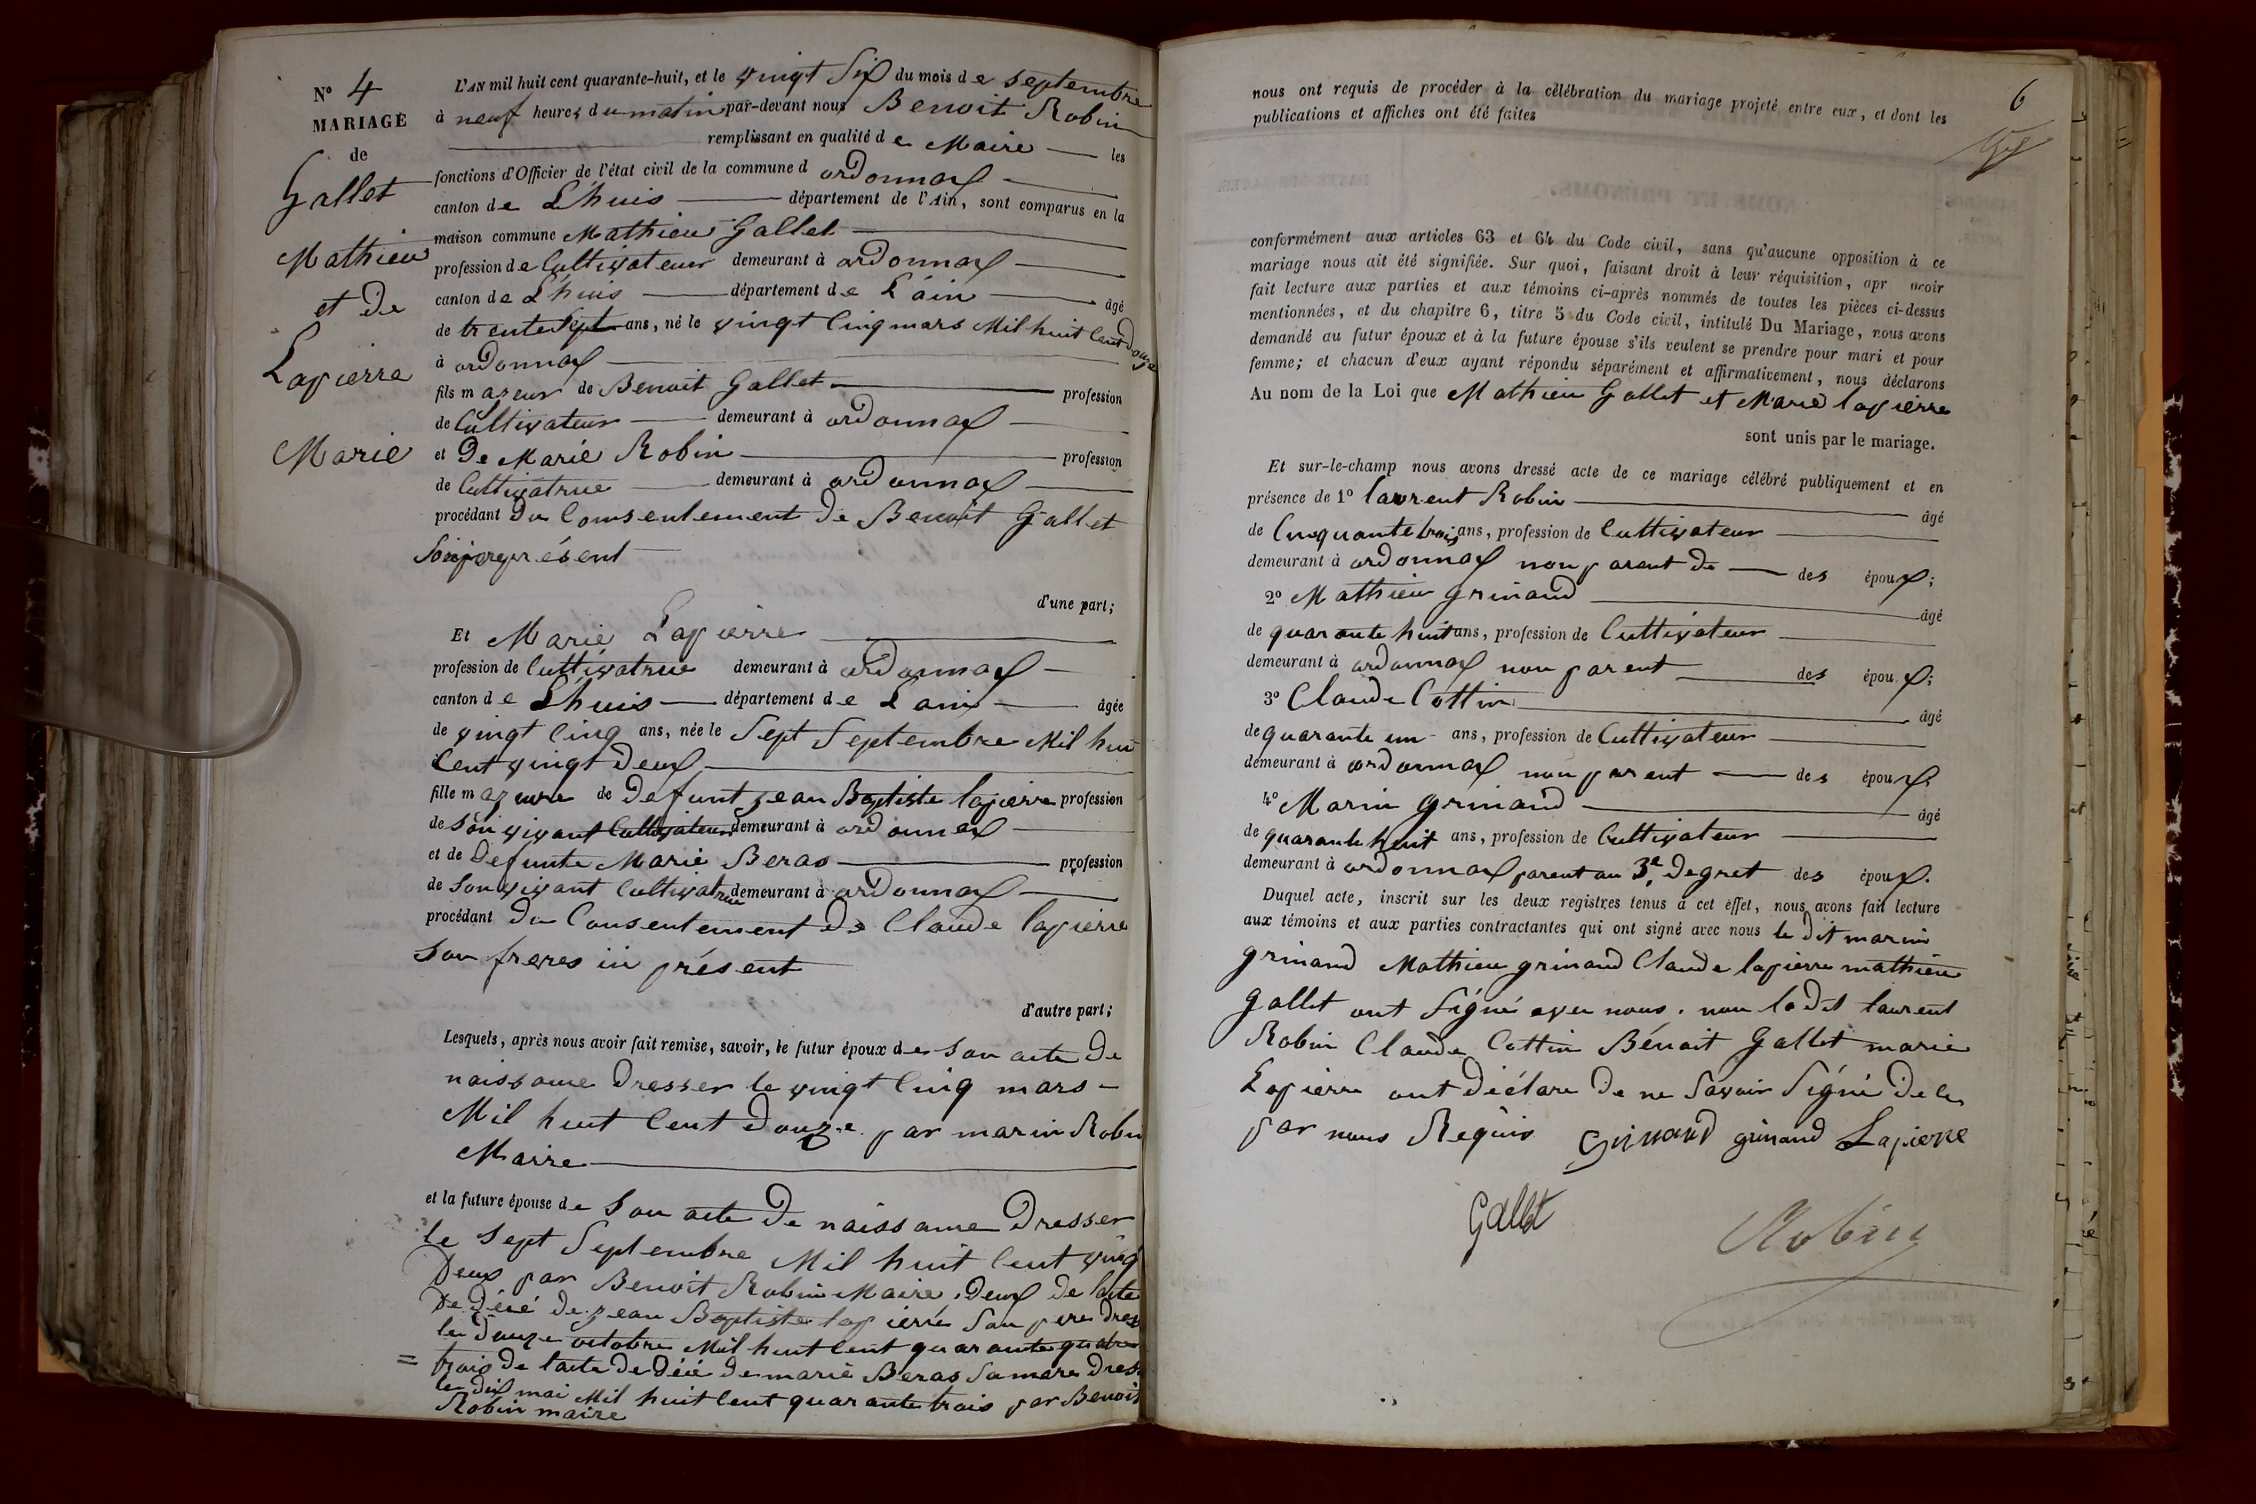 N° 4
MARIAGE
de
Gallet
Mathieu
et De
Lapierre
Marie
L'AN mil huit cent quarante-huit, et le vingt Six du mois de septembre
à neuf heures du matin par-devant nous Benoit Robin
remplissant en qualité de Maire les
fonctions d'Officier de l'état civil de la commune d ordonnax
canton de L'huis département de l'Ain, sont comparus en la
maison commune Mathieu Gallet
profession de Cultivateur demeurant à ordonnax
canton de L'huis département de L'ain âgé
de trente Sept ans, né le vingt Cinq mars Mil huit Cent Douze
à ordonnax
fils majeur de Benoit Gallet profession
de Cultivateur demeurant à ordonnax
et De Marie Robin profession
de Cultivatrice demeurant à ordonnax
procédant Du Comsentement De Benoit Gallet
Son present
d'une part;
Et Marie Lapierre
profession de Cultivatrice demeurant à ordonnax
canton de L'huis département de L'ain âgée
de vingt Cinq ans, née le Sept Septembre Mil huit
Cent vingt Deux
fille majeure de Defunt jean Baptiste lapierre profession
de son vivant Cultivateur demeurant à ordonnax
et de Defunte Marie Beras profession
de Son vivant Cultivatrice demeurant à ordonnax
procédant Du Consentement De Claude lapierre
Son freres ici présent
d'autre part;
Lesquels, après nous avoir fait remise, savoir, le futur époux de Son acte De
naissance Dresser le vingt Cinq mars
Mil huit Cent Douze par marin Robin
Maire
et la future épouse de Son acte De naissance Dresser
le Sept Septembre Mil huit Cent vingt
Deux par Benoit Robin Maire. Deux De lacte
De Décé De jean Baptiste lapierre Son pere Dres
le Douze octobre Mil huit Cent quarante quatre
= trois De lacte De Décé De marie Beras Sa mere Dres
le Dix mai Mil huit Cent quarante trois par Benoit
Robin maire
6
nous ont requis de procéder à la célébration du mariage projeté entre eux, et dont les
publications et affiches ont été faites
conformément aux articles 63 et 64 du Code civil, sans qu'aucune opposition à ce
mariage nous ait été signifiée. Sur quoi, faisant droit à leur réquisition, apr avoir
fait lecture aux parties et aux témoins ci-après nommés de toutes les pièces ci-dessus
mentionnées, et du chapitre 6, titre 5 du Code civil, intitulé Du Mariage, nous avons
demandé au futur époux et à la future épouse s'ils veulent se prendre pour mari et pour
femme; et chacun d'eux ayant répondu séparément et affirmativement, nous déclarons
Au nom de la Loi que Mathieu Gallet et Marie lapierre
sont unis par le mariage.
Et sur-le-champ nous avons dressé acte de ce mariage célébré publiquement et en
présence de 1° laurent Robin âgé
de Cinquante trois ans, profession de Cultivateur
demeurant à ordonnax non parent De des époux;
2° Mathieu Grinand âgé
de quarante huit ans, profession de Cultivateur
demeurant à ordonnax non parent des époux;
3° Claude Cottin âgé
de quarante un ans, profession de Cultivateur
demeurant à ordonnax non parent des époux
4° Marin Grinand âgé
de quarante huit ans, profession de Cultivateur
demeurant à ordonnax parent au 3e Degret des époux.
Duquel acte, inscrit sur les deux registres tenus à cet effet, nous avons fait lecture
aux témoins et aux parties contractantes qui ont signé avec nous le Dit marin
grinand Mathieu grinand Claude lapierre mathieu
Gallet ont Signé avec nous. non ledit laurent
Robin Claude Cottin Bénoit Gallet marie
Lapierre ont Déclare De ne Savoir Signé De le
par nous Requis Grinand grinand Lapierre
Gallet
Robin